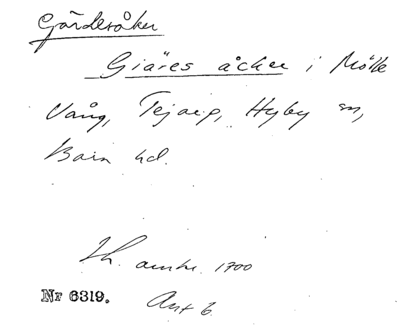 Gärdesåker
Giäres åcker i Mölle
Vång, Tejarp, Hyby sn,
Bara hd.
Lh. amtr. 1700
Nr 6319. Ant 6.